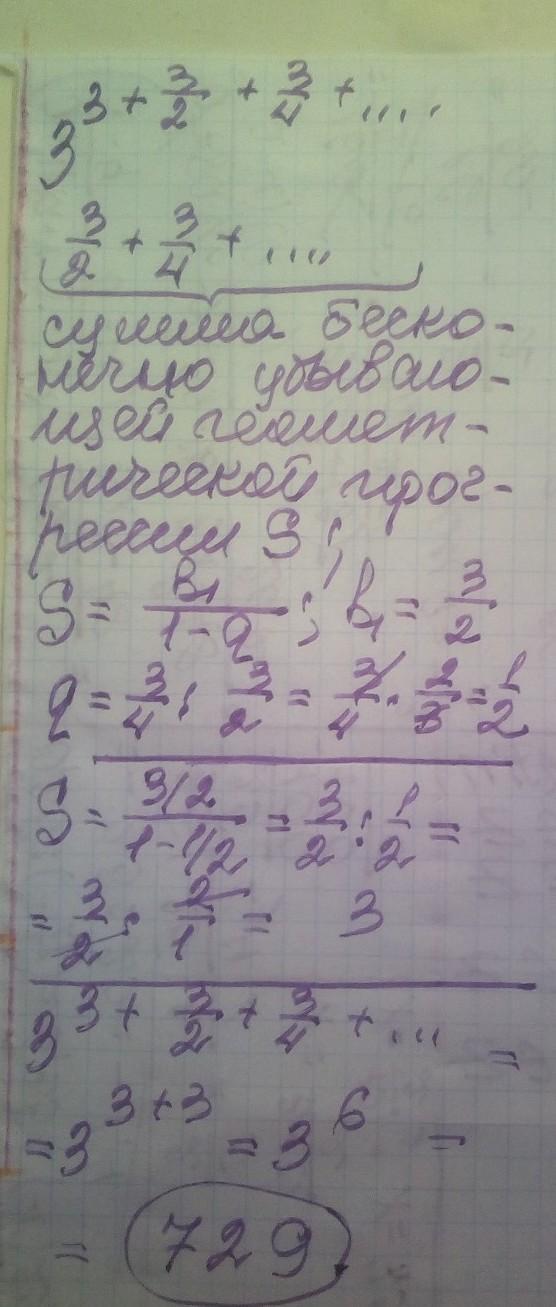 3^{3 + 3/2 + 3/4 + ....}
3/2 + 3/4 + ....
сумма беско-
нечно убываю-
щей геомет-
рической прог-
рессии S;
S = b₁/(1-q); b₁ = 3/2
q = 3/4 : 3/2 = 3/4 · 2/3 = 1/2
S = (3/2)/(1-1/2) = 3/2 : 1/2 =
= 3/2 · 2/1 = 3
3^{3 + 3/2 + 3/4 + ...} =
= 3^{3+3} = 3^6 =
= 729